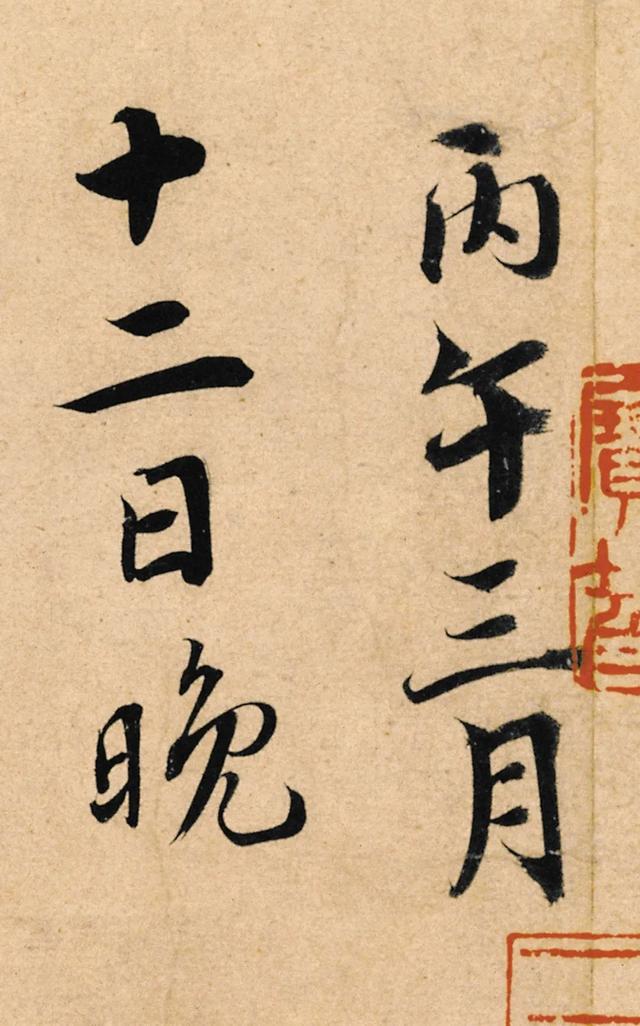 丙午三月
十二日晚